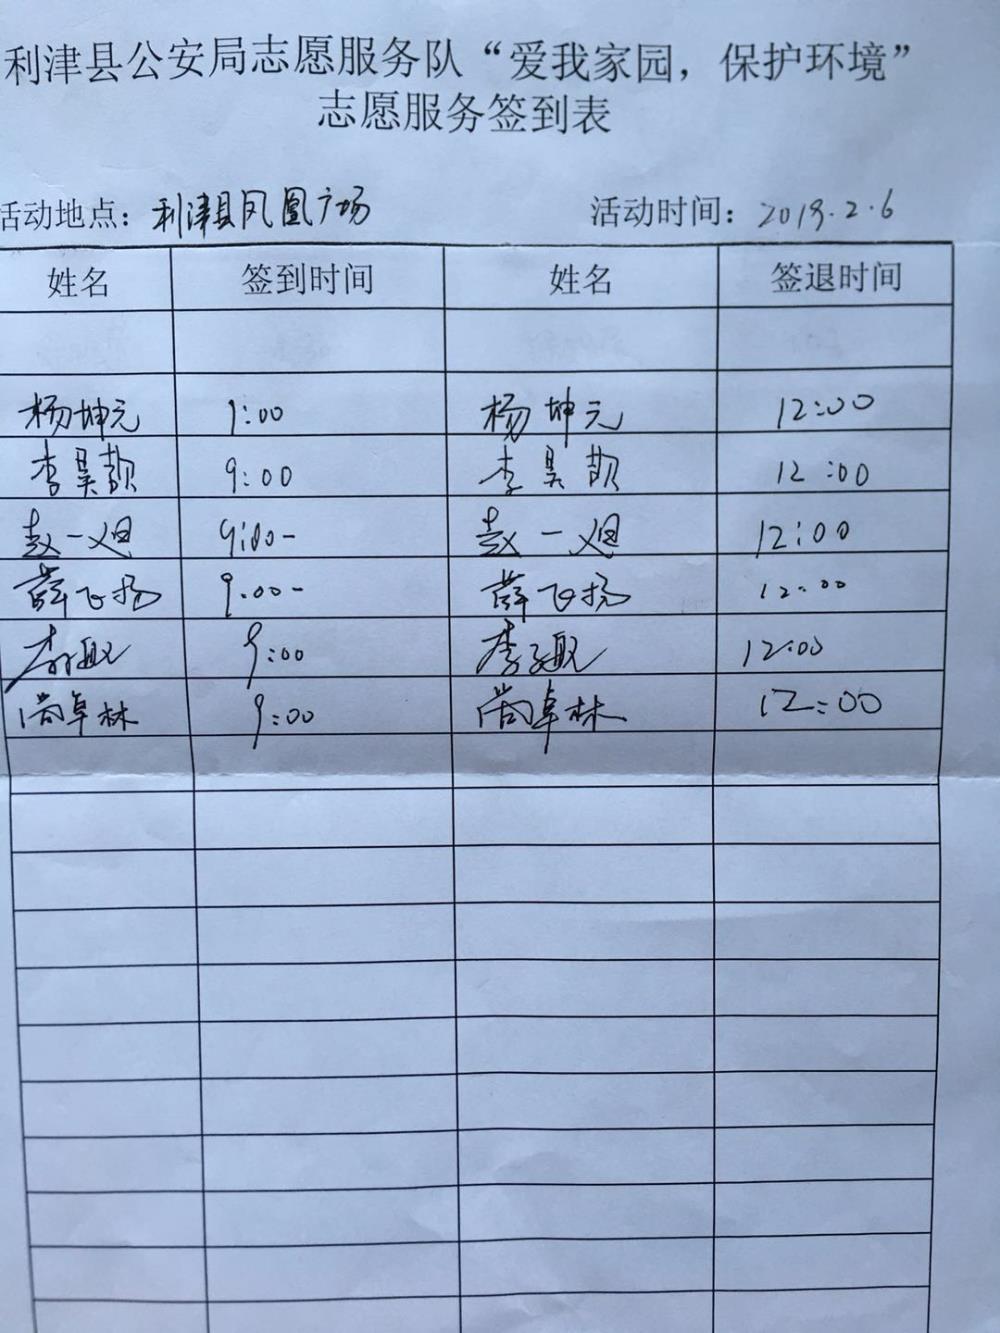 利津县公安局志愿服务队“爱我家园，保护环境”
志愿服务签到表
活动地点：利津县凤凰广场 活动时间：2019.2.6
姓名 签到时间 姓名 签退时间
杨坤元 9:00 杨坤元 12:00
李昊 9:00 李昊 12:00
赵一 9:00- 赵一 12:00
薛飞扬 9:00- 薛飞扬 12:00
李 9:00 李子 12:00
尚卓林 9:00 尚卓林 12:00